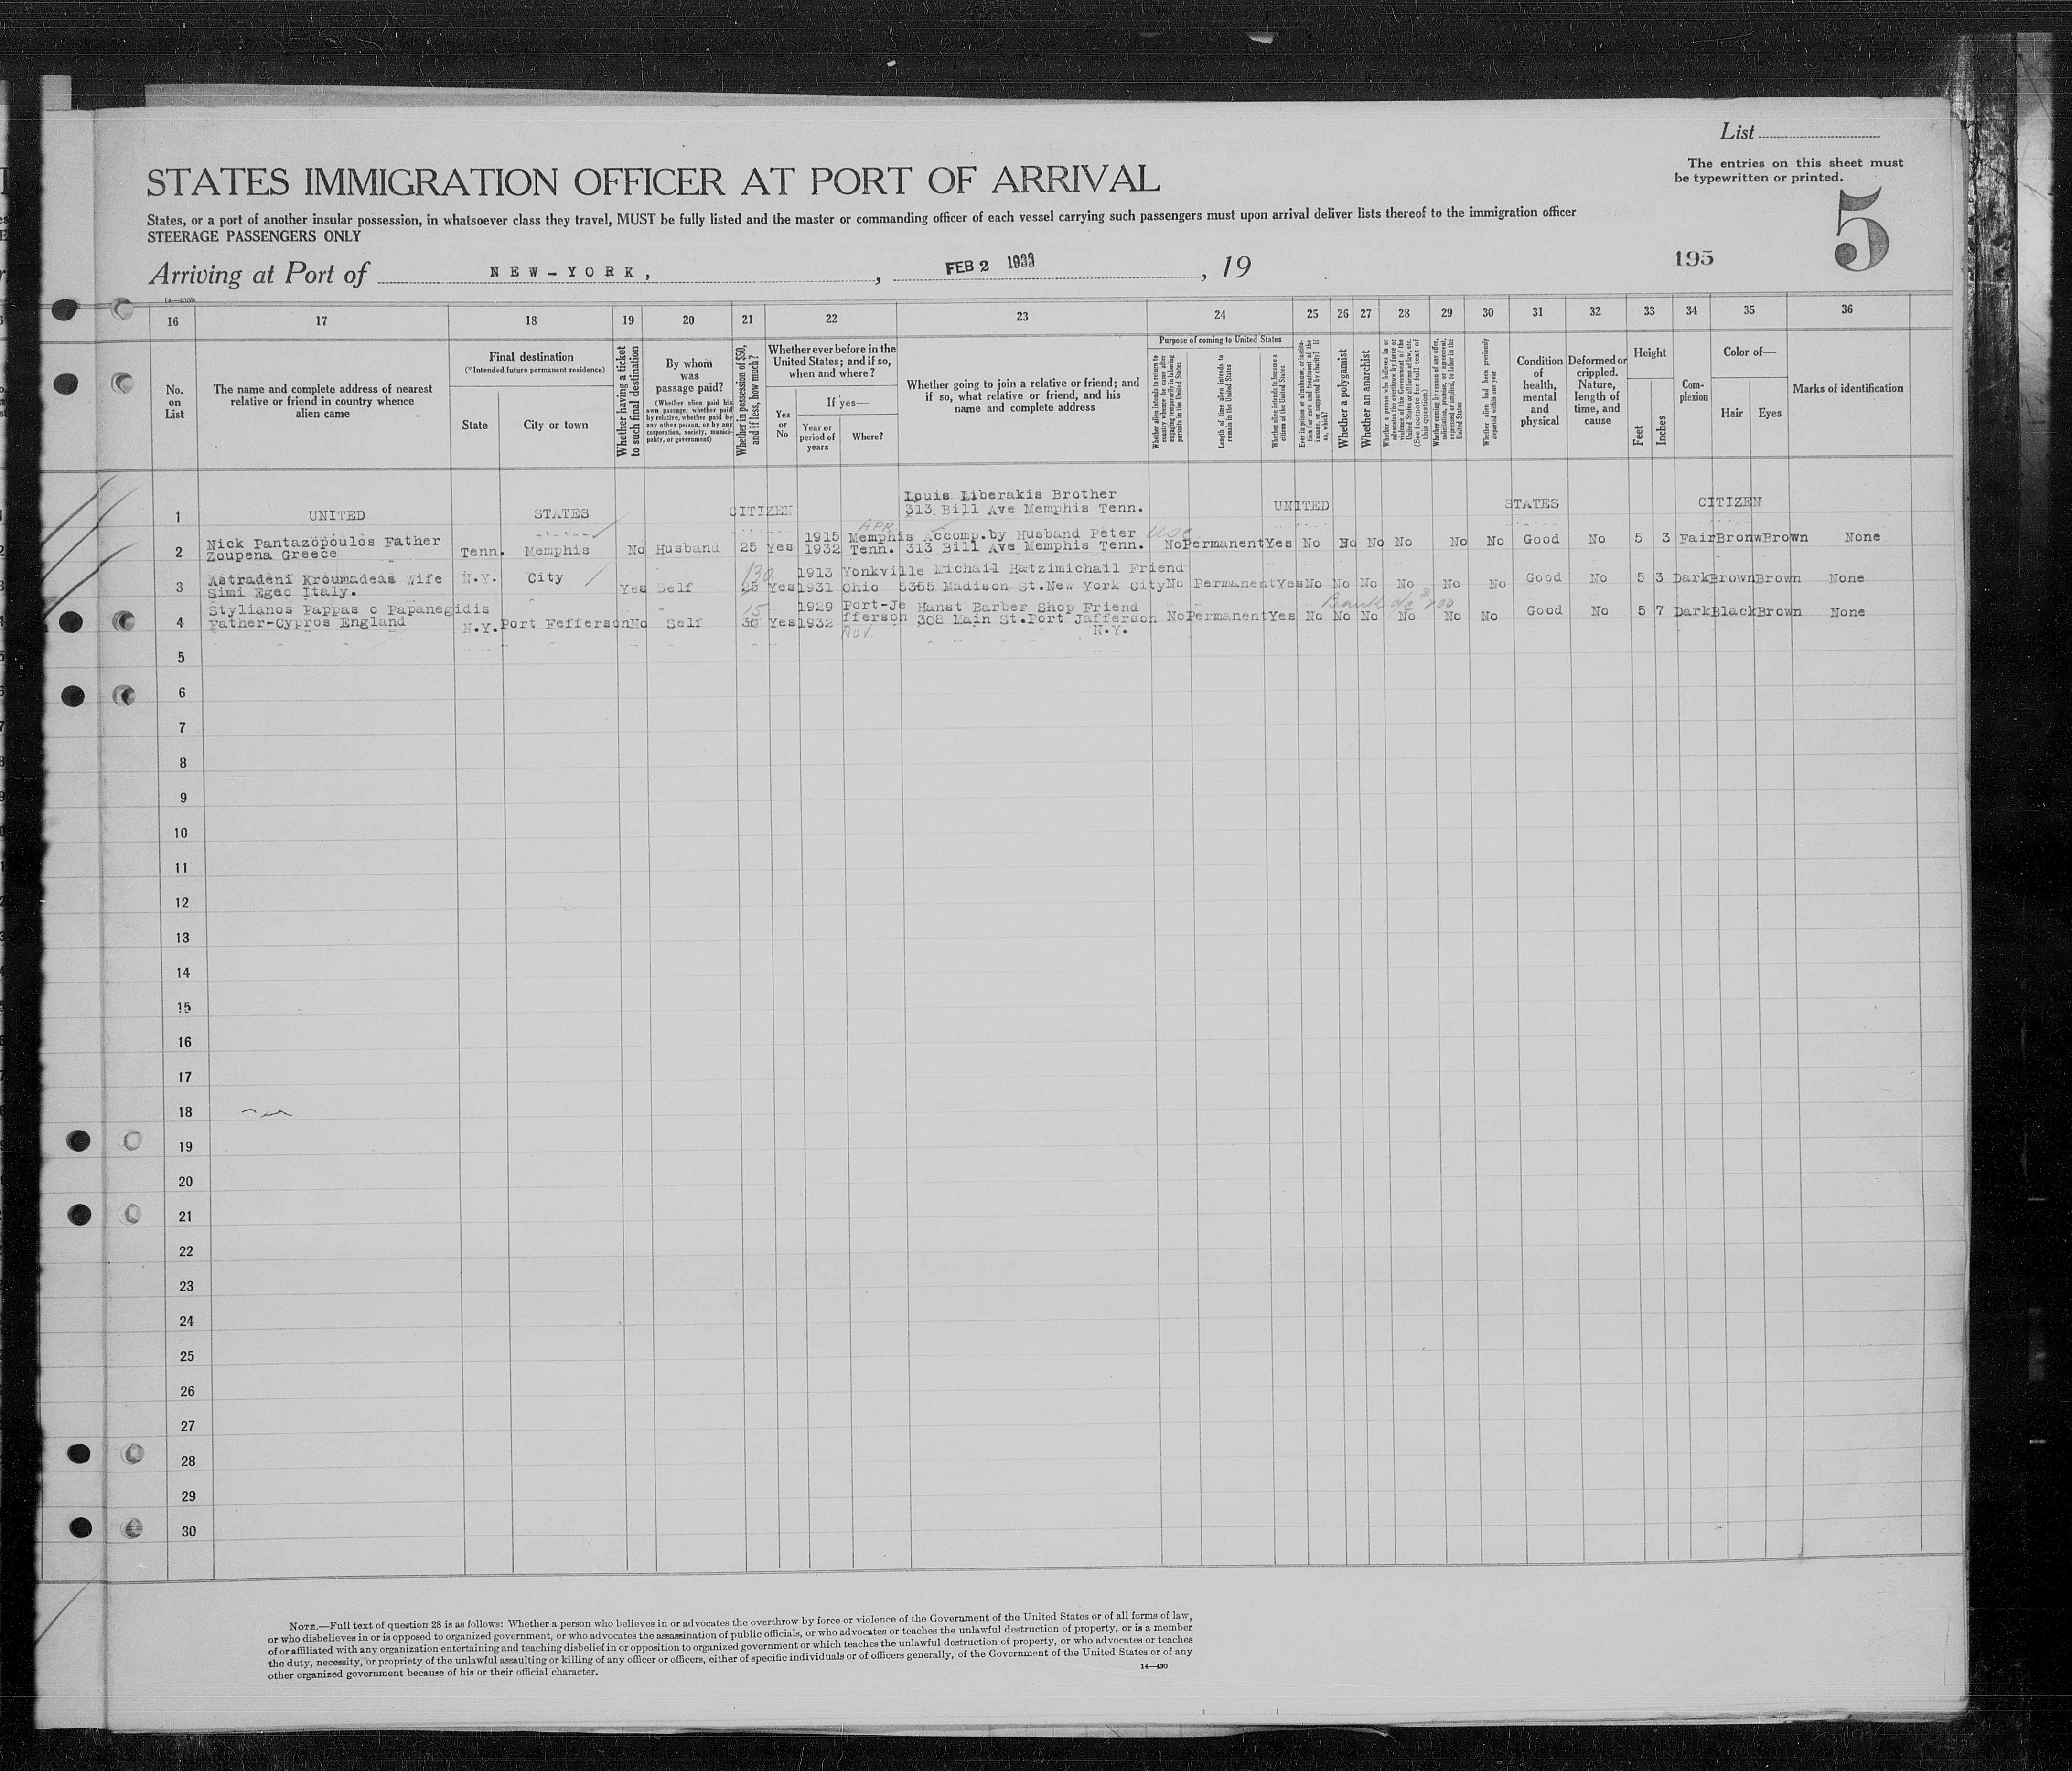 List
The entries on this sheet must
be typewritten or printed.
STATES IMMIGRATION OFFICER AT PORT OF ARRIVAL
5
States, or a port of another insular possession, in whatsoever class they travel, MUST be fully listed and the master or commanding officer of each vessel carrying such passengers must upon arrival deliver lists thereof to the immigration officer
STEERAGE PASSENGERS ONLY
Arriving at Port of NEW-YORK, , FEB 2 1933 , 19
195
14—430b
16 17 18 19 20 21 22 23 24 25 26 27 28 29 30 31 32 33 34 35 36
No.
on
List
The name and complete address of nearest
relative or friend in country whence
alien came
Final destination
(*Intended future permanent residence)
State City or town
Whether having a ticket
to such final destination
By whom
was
passage paid?
(Whether alien paid his
own passage, whether paid
by relative, whether paid by
any other person, or by any
corporation, society, munici-
pality, or government)
Whether in possession of $50,
and if less, how much?
Whether ever before in the
United States; and if so,
when and where?
Yes
or
No
If yes—
Year or
period of
years
Where?
Whether going to join a relative or friend; and
if so, what relative or friend, and his
name and complete address
Purpose of coming to United States
Whether alien intends to return to
country whence he came after
engaging temporarily in laboring
pursuits in the United States
Length of time alien intends to
remain in the United States
Whether alien intends to become a
citizen of the United States
Ever in prison or almshouse, or institu-
tion for care and treatment of the
insane, or supported by charity? If
so, which?
Whether a polygamist
Whether an anarchist
Whether a person who believes in or
advocates the overthrow by force or
violence of the Government of the
United States or all forms of law, etc.
(See footnote for full text of
this question)
Whether coming by reason of any offer,
solicitation, promise, or agreement,
expressed or implied, to labor in the
United States
Whether alien had been previously
deported within one year
Condition
of
health,
mental
and
physical
Deformed or
crippled.
Nature,
length of
time, and
cause
Height
Feet
Inches
Com-
plexion
Color of—
Hair Eyes
Marks of identification
1 UNITED STATES CITIZEN Louis Liberakis Brother
313 Bill Ave Memphis Tenn. UNITED STATES CITIZEN
APR.
2 Nick Pantazopoulos Father
Zoupena Greece Tenn. Memphis No Husband 25 Yes 1915
1932 Memphis
Tenn. Accomp.by Husband Peter
313 Bill Ave Memphis Tenn. No Permanent Yes No No No No No No Good No 5 3 Fair Bronw Brown None
3 Astradeni Kroumadeas Wife
Simi Egeo Italy. N.Y. City Yes Self 130 25 Yes 1913
1931 Yonkville
Ohio Michail Hatzimichail Friend
5365 Madison St.New York City No Permanent Yes No No No No No No Good No 5 3 Dark Brown Brown None
4 Stylianos Pappas o Papanegidis
Father-Cypros England N.Y. Port Fefferson No Self 15 30 Yes 1929
1932 Port-Je
fferson
Nov. Hanst Barber Shop Friend
308 Main St.Port Jafferson
N.Y. No Permanent Yes No No No No No No Good No 5 7 Dark Black Brown None
5
6
7
8
9
10
11
12
13
14
15
16
17
18
19
20
21
22
23
24
25
26
27
28
29
30
NOTE.—Full text of question 28 is as follows: Whether a person who believes in or advocates the overthrow by force or violence of the Government of the United States or of all forms of law,
or who disbelieves in or is opposed to organized government, or who advocates the assassination of public officials, or who advocates or teaches the unlawful destruction of property, or is a member
of or affiliated with any organization entertaining and teaching disbelief in or opposition to organized government or which teaches the unlawful destruction of property, or who advocates or teaches
the duty, necessity, or propriety of the unlawful assaulting or killing of any officer or officers, either of specific individuals or of officers generally, of the Government of the United States or of any
other organized government because of his or their official character.
14—430